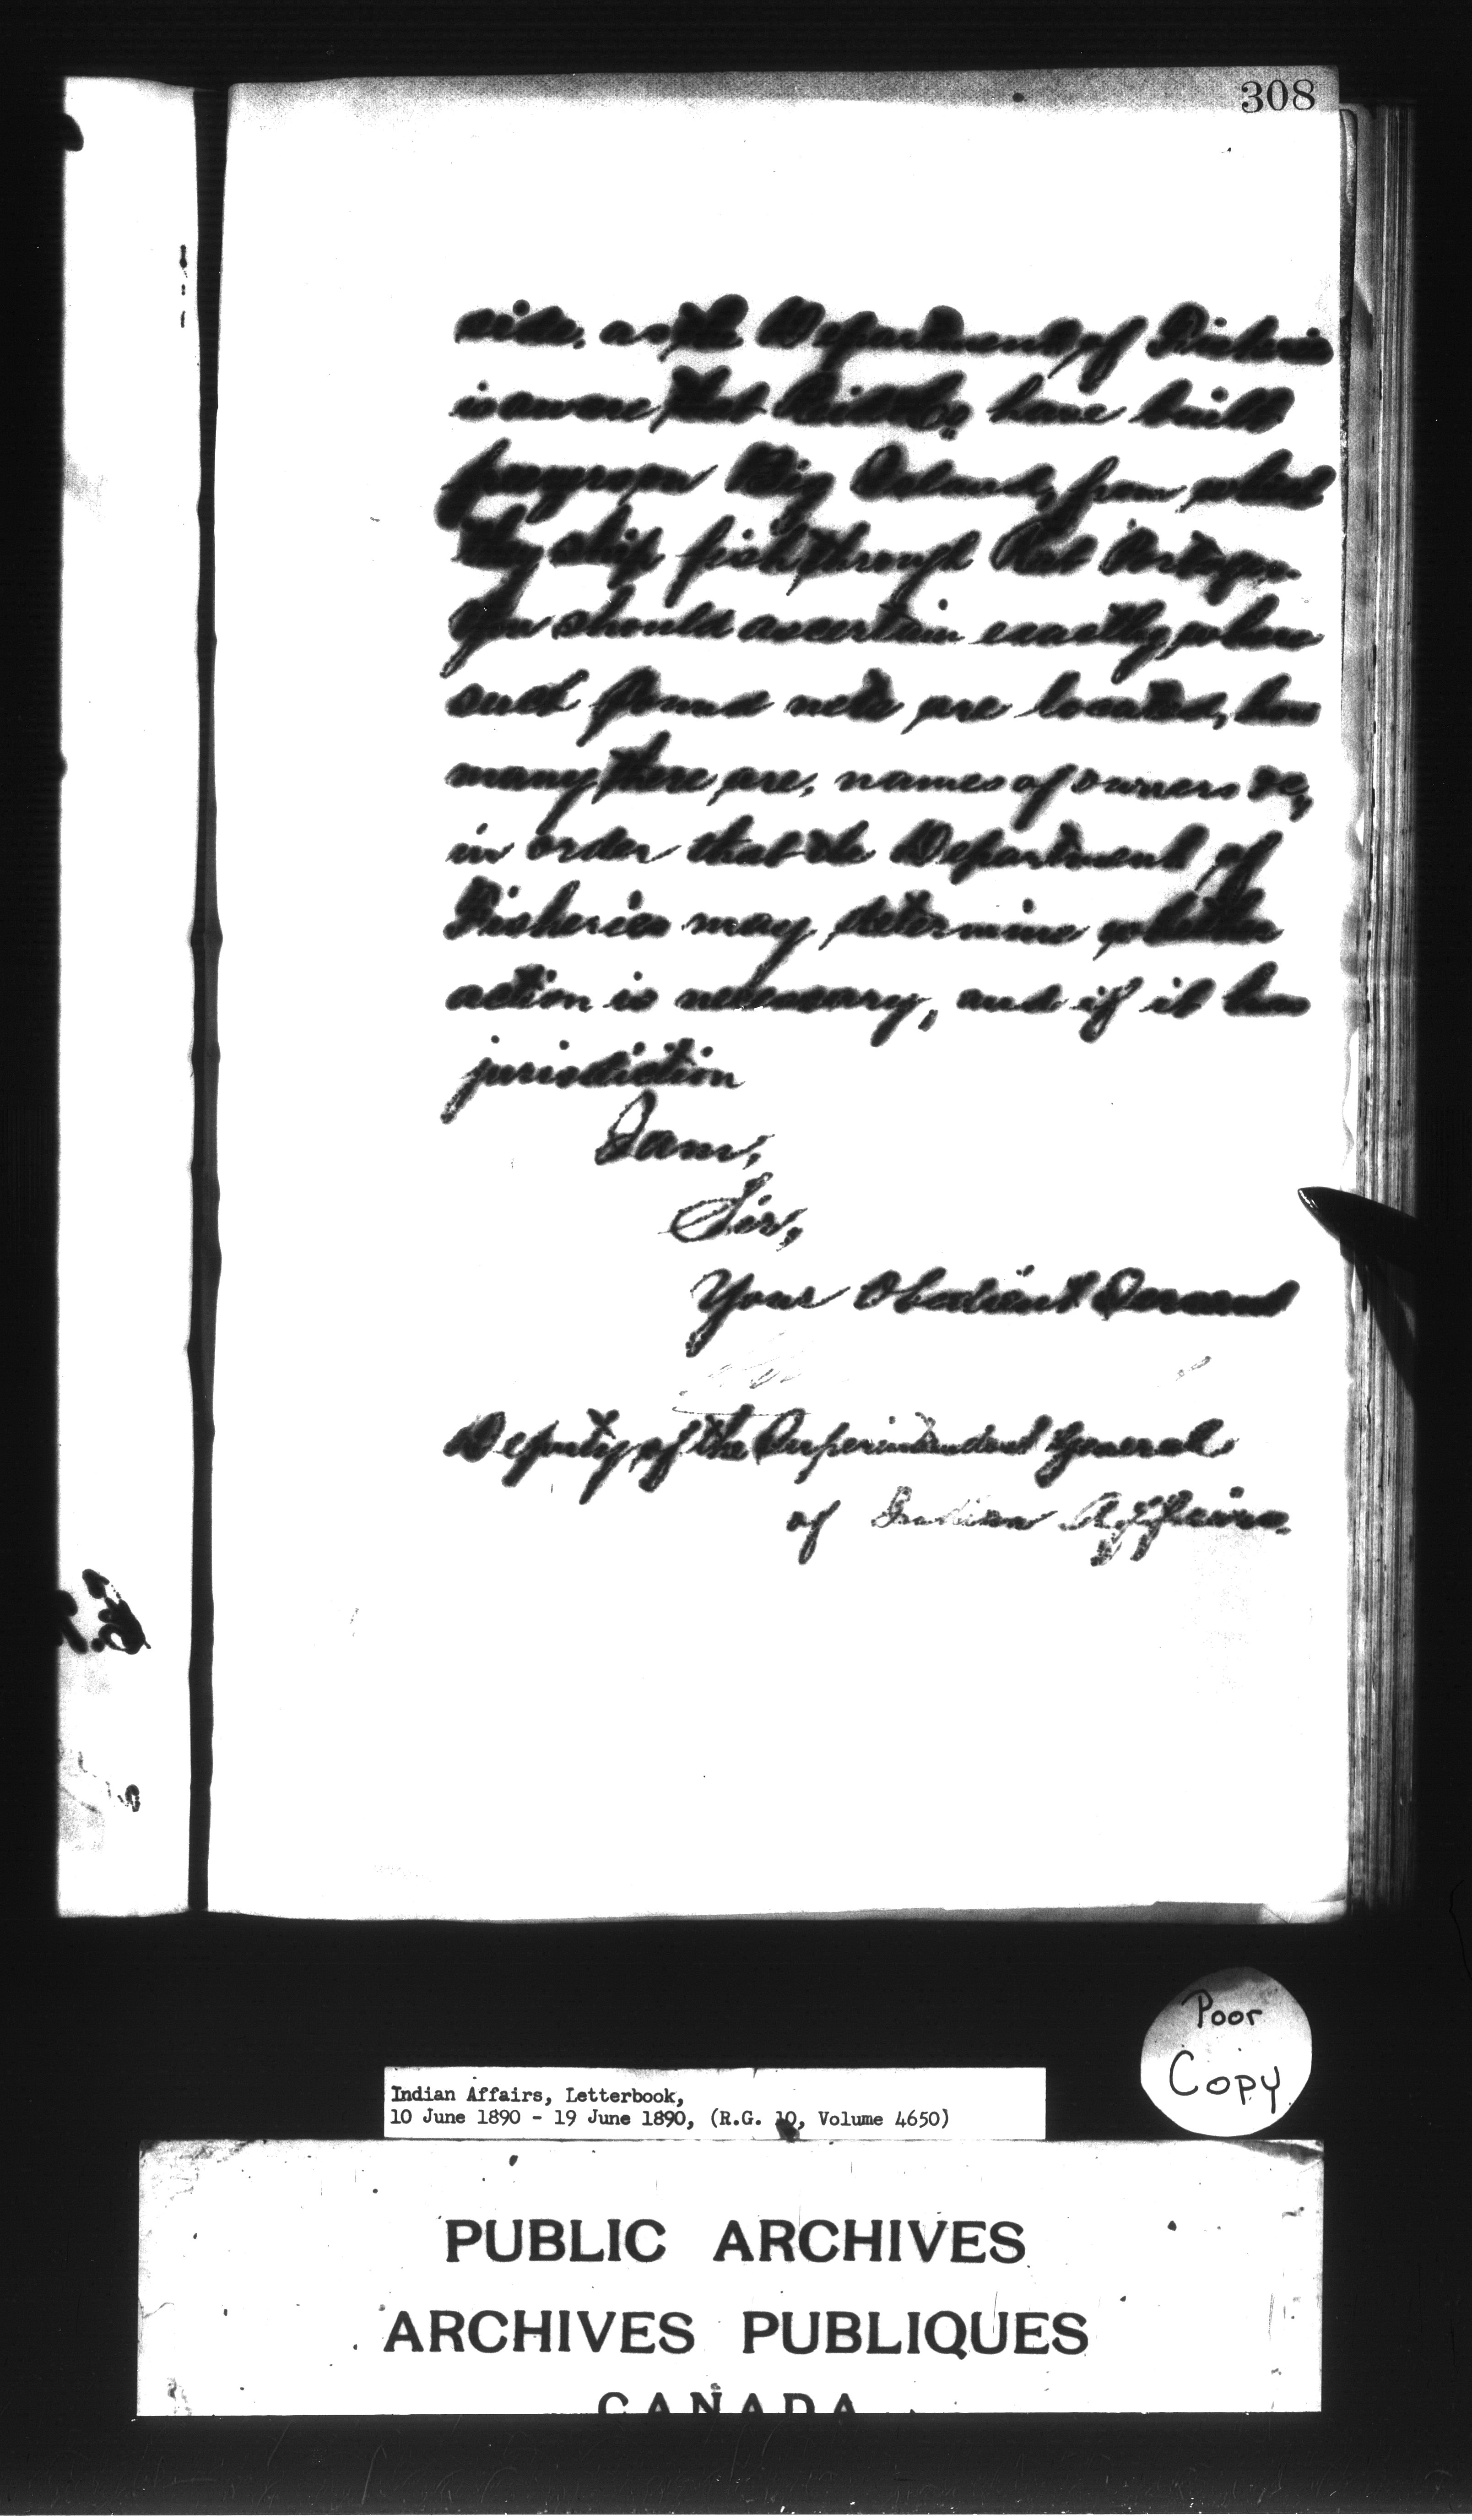 308
side, as the Department of Fisheries
is aware that Reid & Co. have built
upon Big Island, from which
they ship fish through Rat Portage.
You should ascertain exactly where
such pound nets are located, how
many there are, names of owners &c,
in order that the Department of
Fisheries may determine whether
action is necessary, and if it has
jurisdiction
I am,
Sir,
Your Obedient Servant
Deputy of the Superintendent General
of Indian Affairs.
Poor
Copy
Indian Affairs, Letterbook,
10 June 1890 - 19 June 1890, (R.G. 10, Volume 4650)
PUBLIC ARCHIVES
ARCHIVES PUBLIQUES
CANADA